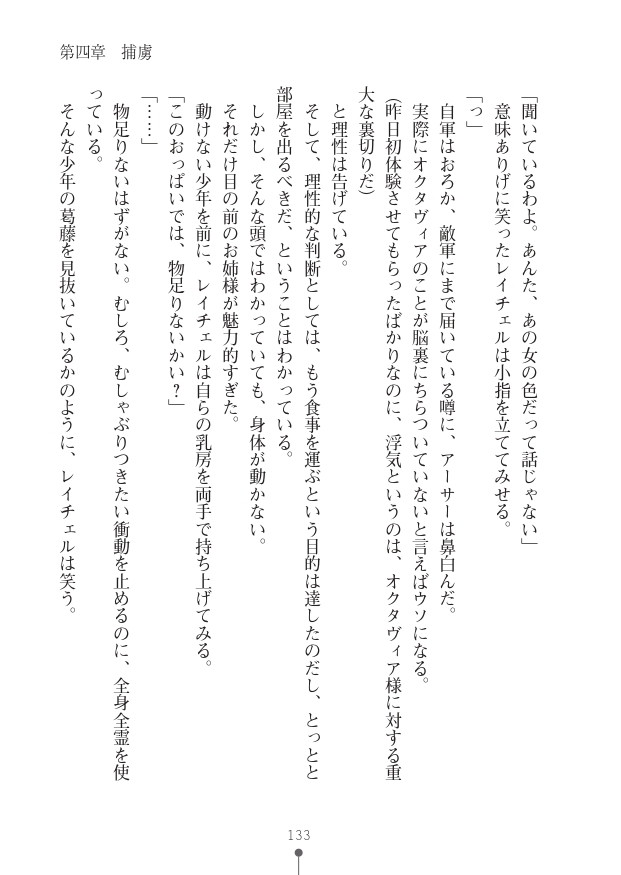 第四章　捕虜
「聞いているわよ。あんた、あの女の色だって話じゃない」
　意味ありげに笑ったレイチェルは小指を立ててみせる。
「っ」
　自軍はおろか、敵軍にまで届いている噂に、アーサーは鼻白んだ。
　実際にオクタヴィアのことが脳裏にちらついていないと言えばウソになる。
（昨日初体験させてもらったばかりなのに、浮気というのは、オクタヴィア様に対する重
大な裏切りだ）
　と理性は告げている。
　そして、理性的な判断としては、もう食事を運ぶという目的は達したのだし、とっとと
部屋を出るべきだ、ということはわかっている。
　しかし、そんな頭ではわかっていても、身体が動かない。
　それだけ目の前のお姉様が魅力的すぎた。
　動けない少年を前に、レイチェルは自らの乳房を両手で持ち上げてみる。
「このおっぱいでは、物足りないかい？」
「……」
　物足りないはずがない。むしろ、むしゃぶりつきたい衝動を止めるのに、全身全霊を使
っている。
　そんな少年の葛藤を見抜いているかのように、レイチェルは笑う。
133